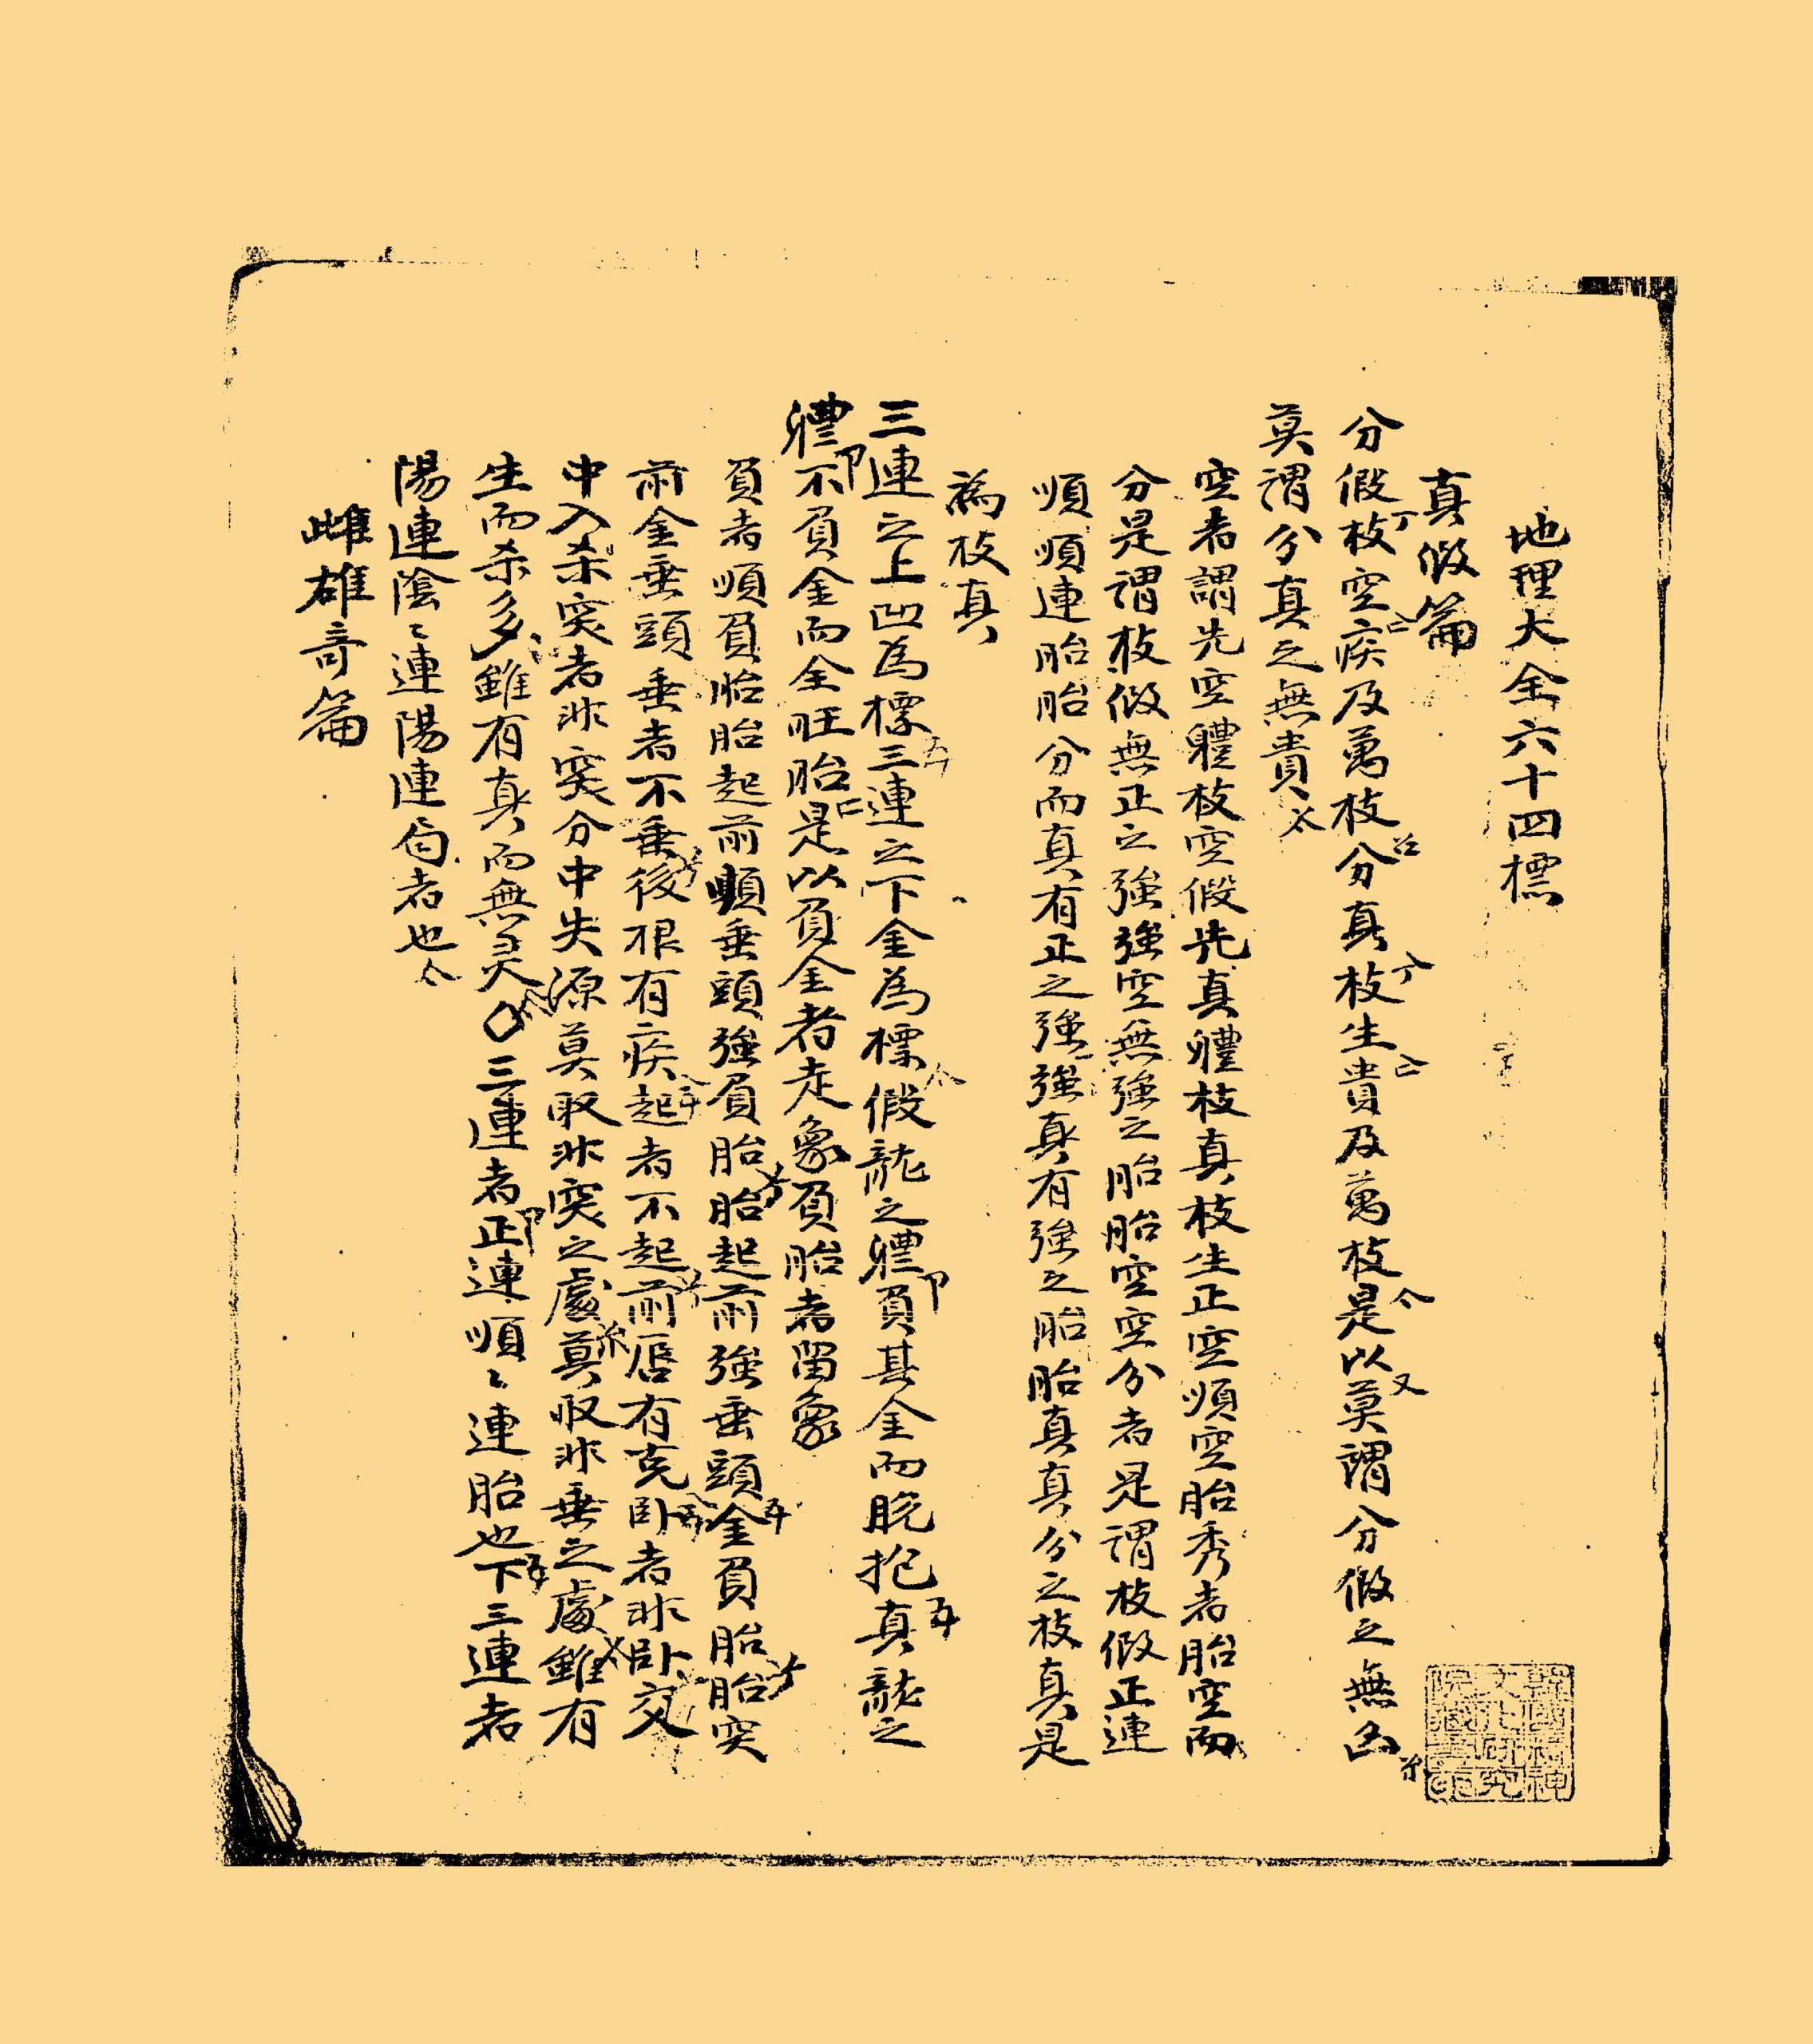 地理大全六十四標
真假篇
分假枝空疾及萬枝分真枝生貴及萬枝是以莫謂分假之無凶
莫謂分真之無貴
空者謂先空體枝空假先真體枝真枝生正空順空胎秀者胎空而
分是謂枝假無正之強強空無強之胎胎空空分者是謂枝假正連
順順連胎胎分而真有正之強強真有強之胎胎真真分之枝真是
為枝真
三連之上凹為標三連之下金為標假龍之體負其金而脱抱真龍之
體不負金而全旺胎是以負金者走象負胎者留象
負者順負胎胎起前順垂頭強負胎胎起前強垂頭金負胎胎突
前金垂頭垂者不垂後根有疾起者不起前唇有克卧者非卧交
中入杀突者非突分中失源莫取非突之處莫取非垂之處雖有
生而杀多雖有真而無灵〇三連者正連順〻連胎也下三連者
陽連陰〻連陽陽連者也
雌雄奇篇
韓國精神文化研究院藏書